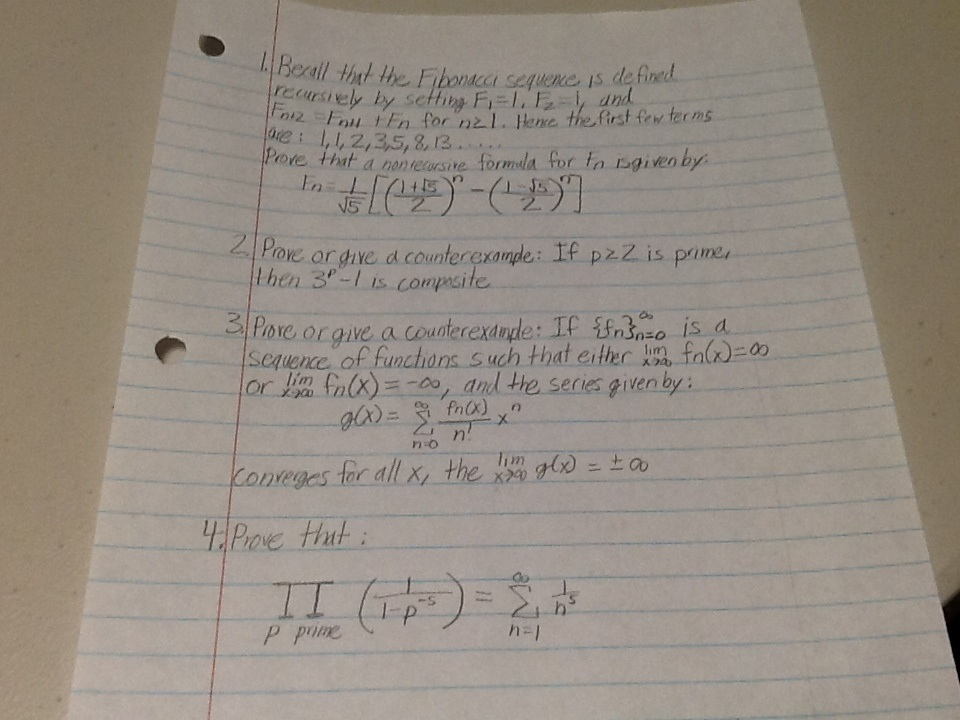 1. Recall that the Fibonacci sequence is defined
recursively by setting F₁=1, F₂=1, and
Fₙ₊₂ = Fₙ₊₁ + Fₙ for n≥1. Hence the first few terms
are: 1, 1, 2, 3, 5, 8, 13 .....
Prove that a nonrecursive formula for Fₙ is given by:
Fₙ = 1/√5 [((1+√5)/2)ⁿ - ((1-√5)/2)ⁿ]
2. Prove or give a counterexample: If p≥2 is prime,
then 3ᵖ-1 is composite
3. Prove or give a counterexample: If {fₙ}ₙ₌₀^∞ is a
sequence of functions such that either lim x→∞ fₙ(x)=∞
or lim x→∞ fₙ(x) = -∞, and the series given by:
g(x) = ∑ₙ₌₀^∞ fₙ(x)/n! xⁿ
converges for all x, the lim x→∞ g(x) = ±∞
4. Prove that:
∏ p prime (1/(1-p⁻ˢ)) = ∑ₙ₌₁^∞ 1/nˢ